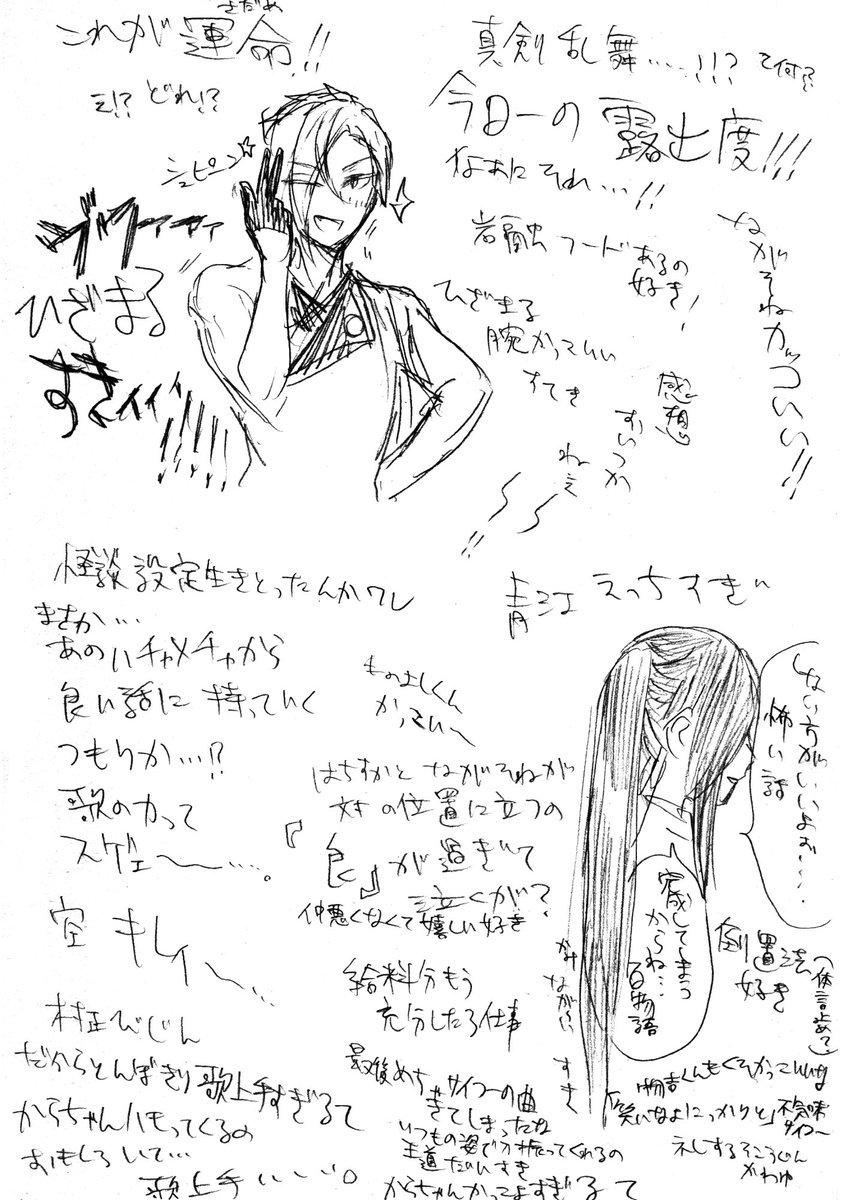 さだめ
これが運命!!
え!? どれ!?
シュピーン☆
ブワァァァァ
ひざまる
すきィィィ
真剣乱舞…!!? て何?
今日一の露出度!!!
なぁにそれ…!!
岩融フードあるの
好き!
ひざまる
腕かっこいい
すてき
ながそねカッコいい!!
感想
ねぇ
怪談設定生きとったんかワレ
まさか…
あのハチャメチャから
良い話に持っていく
つもりか…!?
歌の力って
スゲェ〜…。
空キレイ〜…
村正びじん
だからとんぼきり歌上手すぎるて
からちゃんハモってくるの
おもしろいて…
歌上手いい。
ものよしくん
かっこいい〜
はちすかとながそねが
対の位置に立つの
『良』が過ぎて
泣くが?
仲悪くなくて嬉しい好き
給料分もう
充分したろ仕事
最後めちゃサイコーの曲
きてしまったね
いつもの姿で手振ってくれるの
王道だいすき
からちゃんかっこよすぎるて
青江えっちすぎ
しない方がいいよぉ…
怖い話
完成してしまう
からね…
百物語
倒置法
好き
(体言止め?)
かみ ながぁい すき
物吉くんもくそかっこいいな
「笑いなよにっかりと」不気味
サイコー
かわゆ